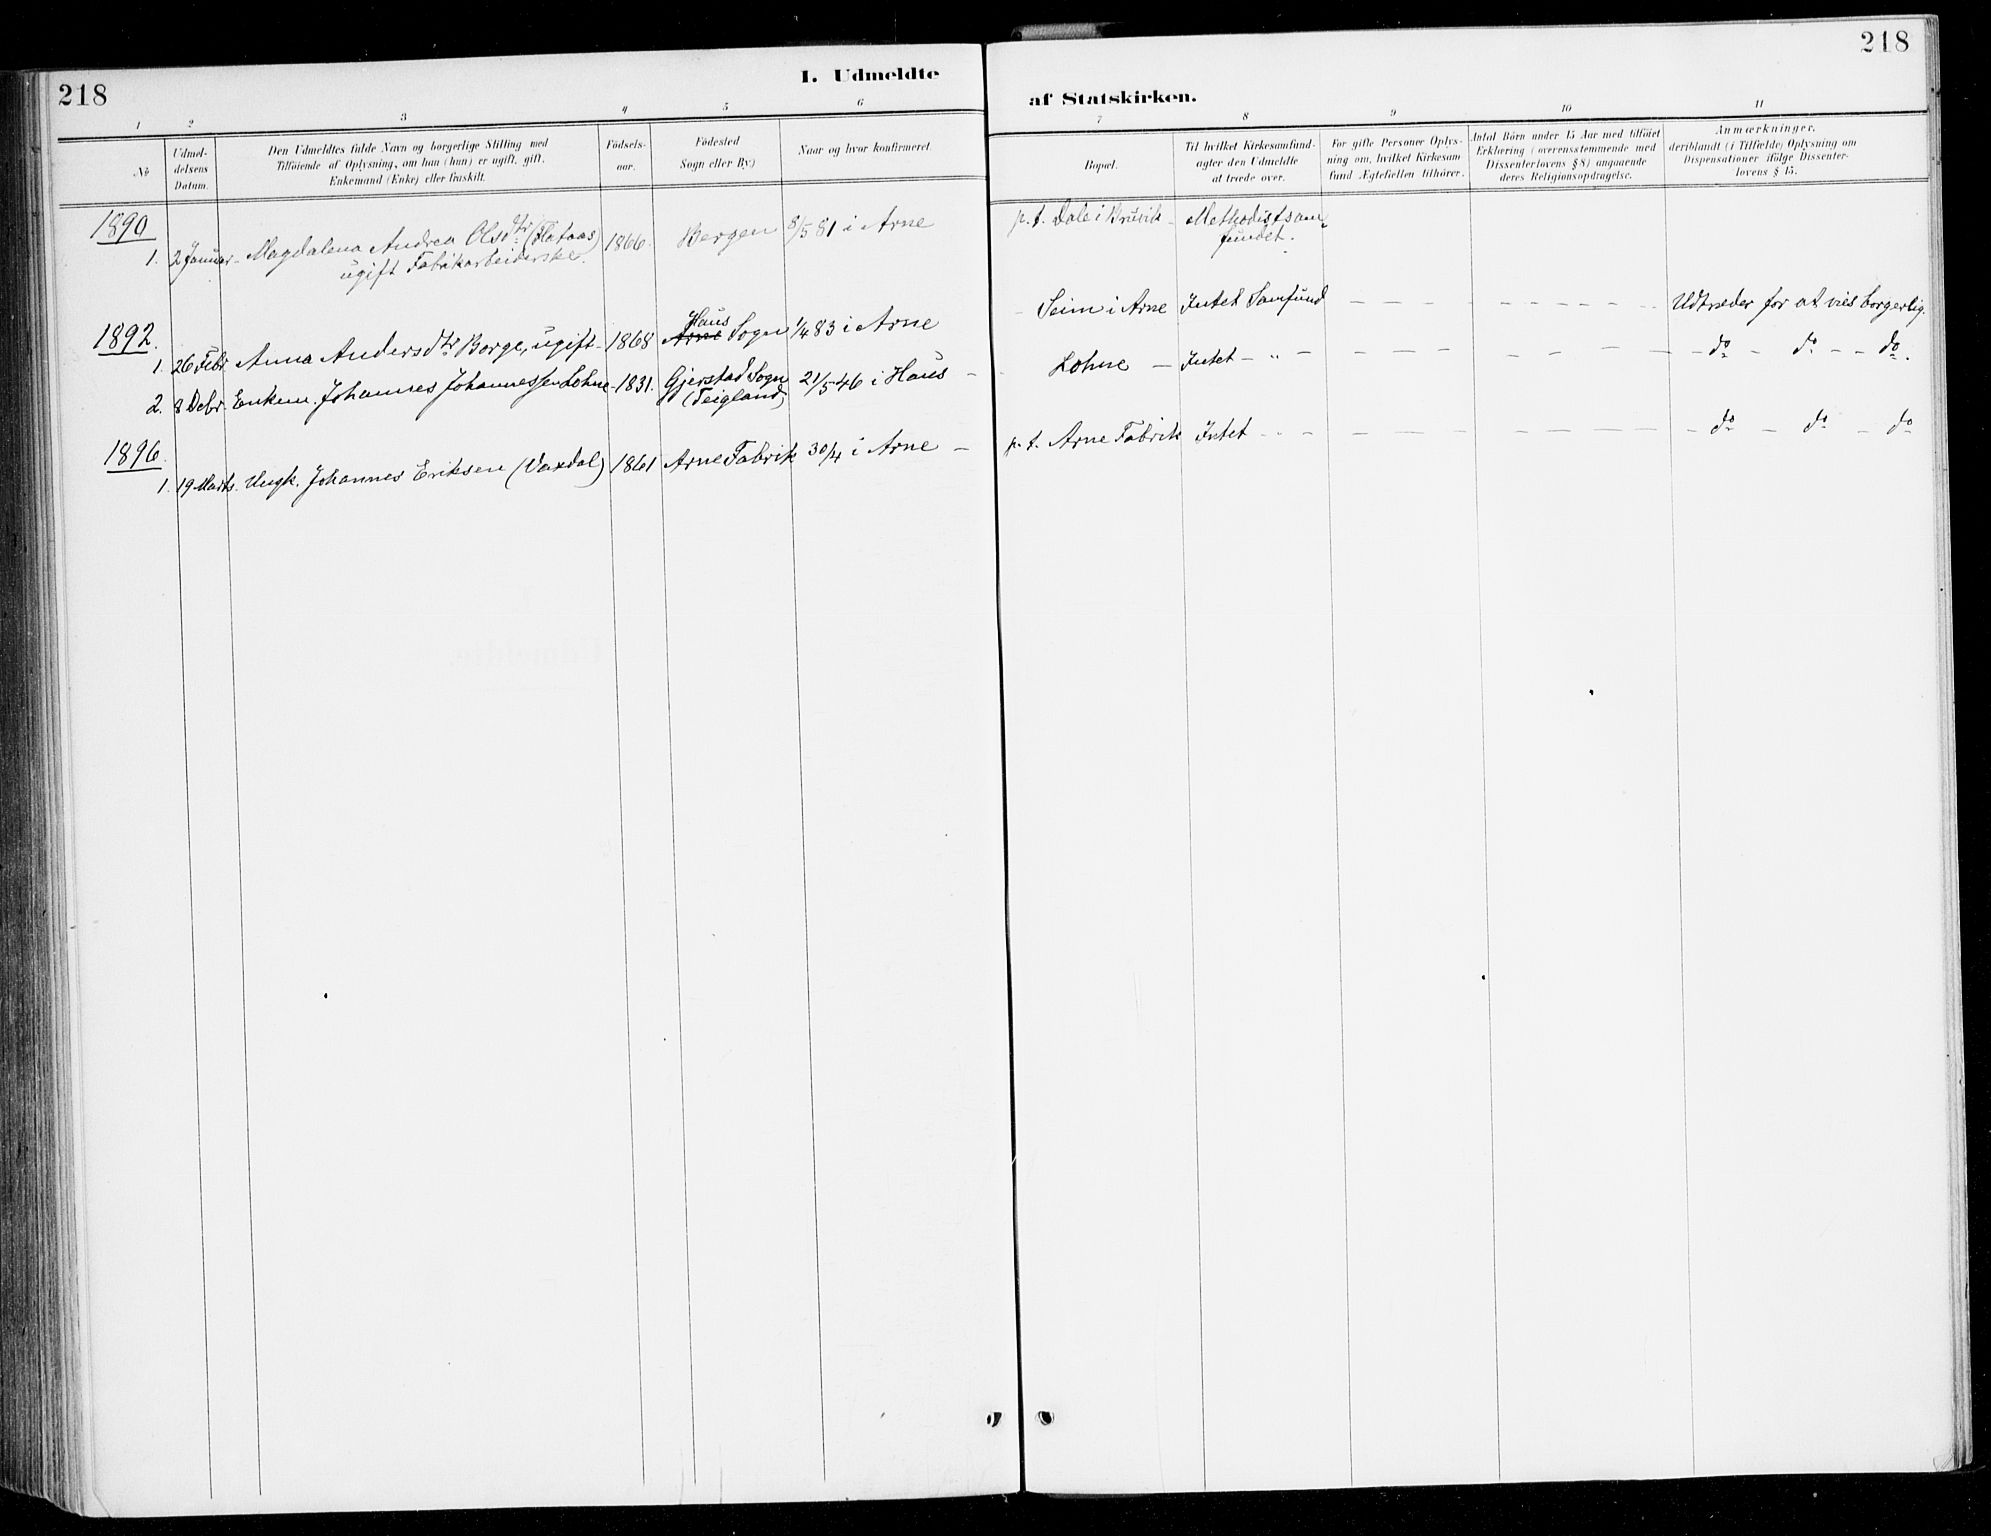 218
I. Udmeldte
af Statskirken.
218
1 2 3 4 5 6 7 8 9 10 11
№
Udmel-
delsens
Datum.
Den Udmeldtes fulde Navn og borgerlige Stilling med
Tilføiende af Oplysning, om han (hun) er ugift, gift,
Enkemand (Enke) eller fraskilt.
Fødsels-
aar.
Fødested
Sogn eller By.)
Naar og hvor konfirmeret.
Bopæl.
Til hvilket Kirkesamfund-
agter den Udmeldte
at træde over.
For gifte Personer Oplys-
ning om, hvilket Kirkesam
fund Ægtefællen tilhører.
Antal Børn under 15 Aar med tilføiet
Erklæring (overensstemmende med
Dissenterlovens § 8) angaaende
deres Religionsopdragelse.
Anmærkninger.
deriblandt (i Tilfælde) Oplysning om
Dispensationer ifølge Dissenter-
lovens § 15.
1890
1. 2 Januar Magdalena Andrea Olsdtr (Flataas) 1866. Bergen 8/5 81 i Arne p. t. Dale i Bruvik Methodistsam-
ugift Fabrikarbeiderske. fundet.
1892.
1. 26 Febr. Anna Andersdtr Borge, ugift 1868 Haus Arne Sogn 1/4 83 i Arne Seim i Arne Intet Samfund Udtræder for at vies borgerlig.
2. 8 Debr. Enkem. Johannes Johannessen Lohne 1831. Gjerstad Sogn 21/5 46 i Haus Lohne Intet " do do do.
(Teigland)
1896.
1. 19 Marts. Ungk. Johannes Eriksen (Vaxdal) 1861 Arne Fabrik 30/4 i Arne p. t. Arne Fabrik Intet do do do